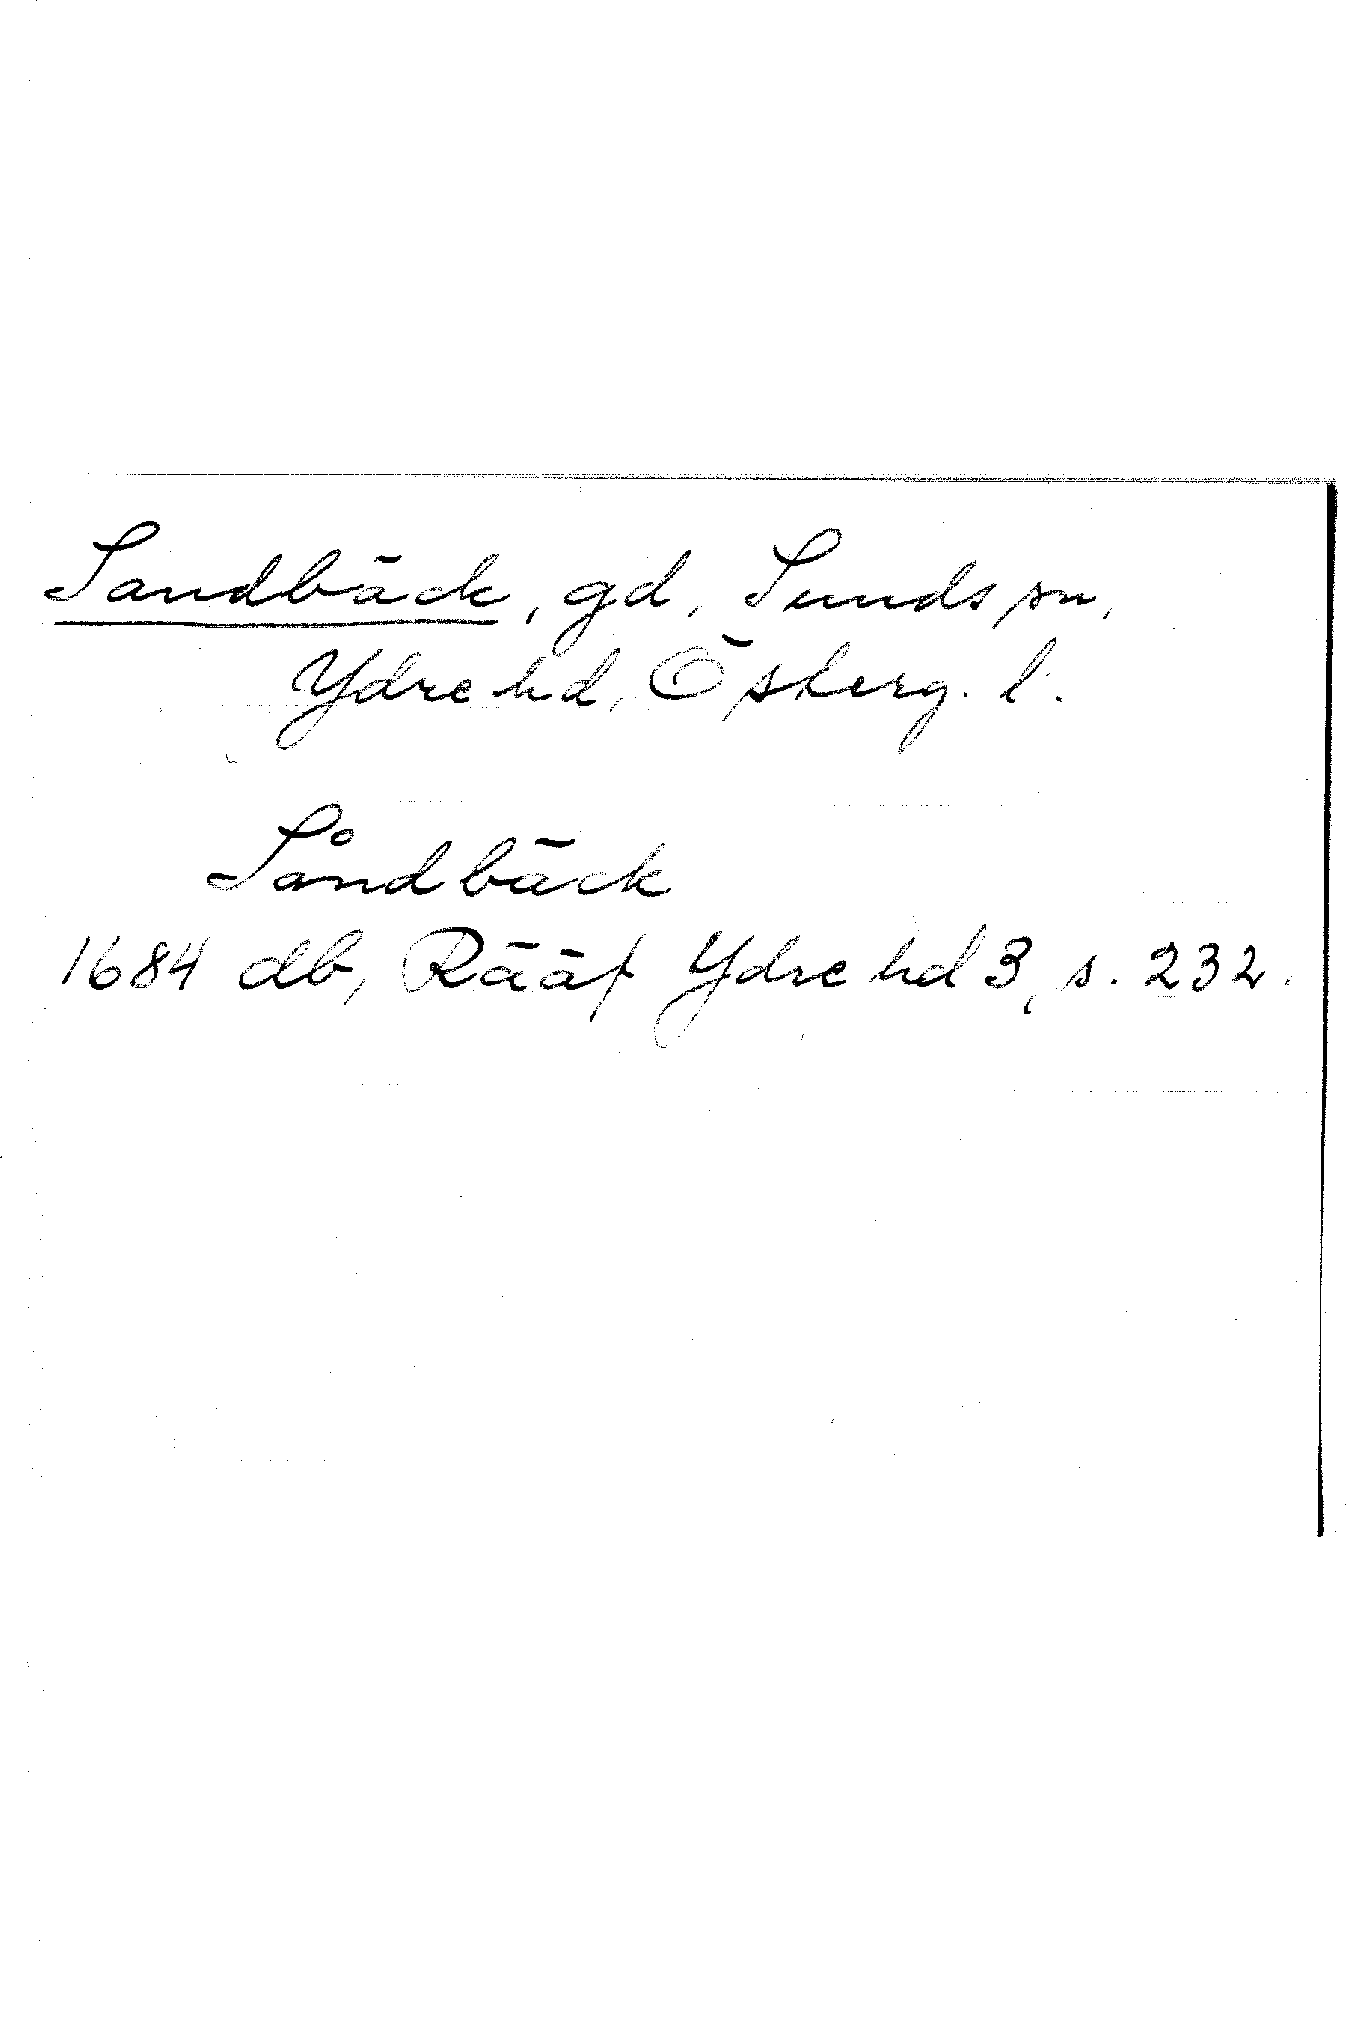 Sandbäck, gd, Sunds sn,
Ydre hd, Österg. l.
Såndbäck
1684 db, Rääf Ydre hd 3, s. 232.